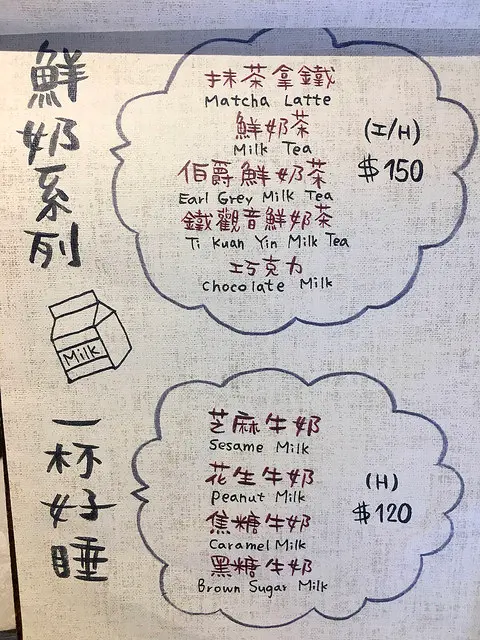 鮮奶系列
抹茶拿鐵
Matcha Latte
鮮奶茶
Milk Tea
伯爵鮮奶茶
Earl Grey Milk Tea
鐵觀音鮮奶茶
Ti Kuan Yin Milk Tea
巧克力
Chocolate Milk
(I/H)
$150
Milk
一杯好睡
芝麻牛奶
Sesame Milk
花生牛奶
Peanut Milk
焦糖牛奶
Caramel Milk
黑糖牛奶
Brown Sugar Milk
(H)
$120